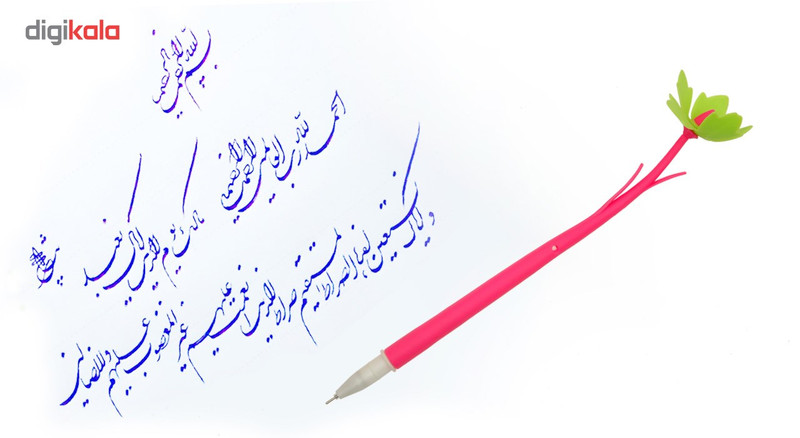 digikala
بسم الله الرحمن الرحیم
الحمد لله رب العالمین الرحمن الرحیم
مالک یوم الدین ایاک نعبد
و ایاک نستعین اهدنا الصراط المستقیم صراط الذین انعمت علیهم غیر المغضوب علیهم و لا الضالین